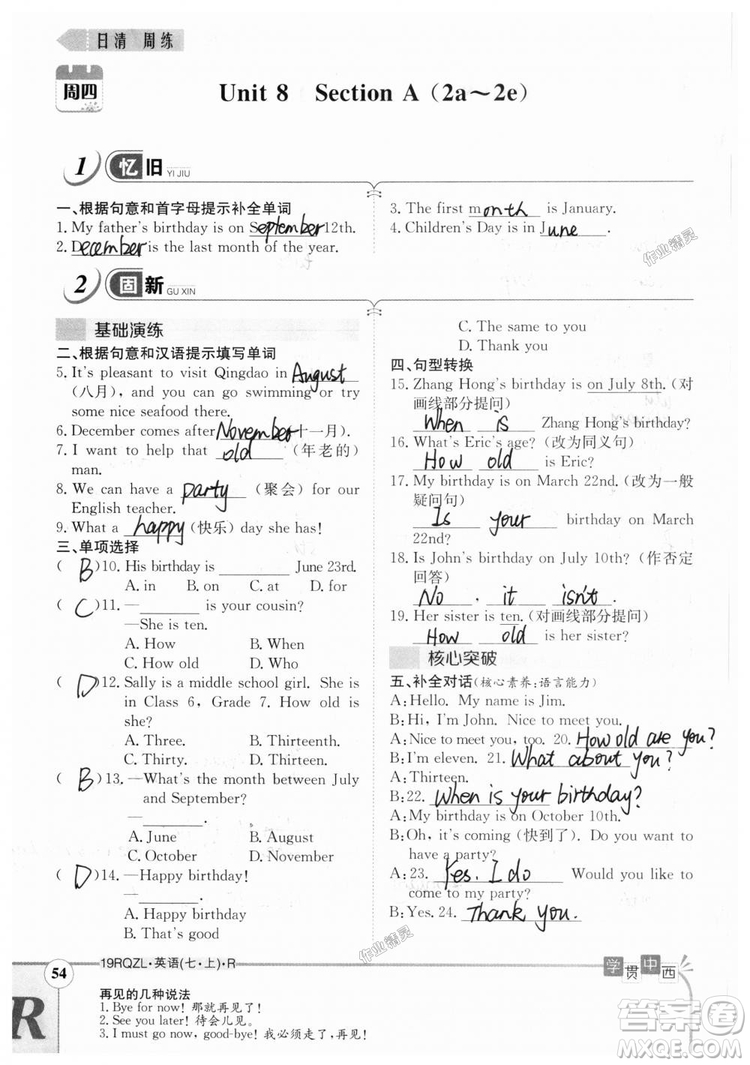 日清 周练
周四
Unit 8 Section A (2a～2e)
1 忆旧 YI JIU
一、根据句意和首字母提示补全单词
1. My father's birthday is on September 12th.
2. December is the last month of the year.
3. The first month is January.
4. Children's Day is in June.
2 固新 GU XIN
基础演练
二、根据句意和汉语提示填写单词
5. It's pleasant to visit Qingdao in August
(八月), and you can go swimming or try
some nice seafood there.
6. December comes after November(十一月).
7. I want to help that old (年老的)
man.
8. We can have a party (聚会) for our
English teacher.
9. What a happy (快乐) day she has!
三、单项选择
( B )10. His birthday is ________ June 23rd.
A. in B. on C. at D. for
( C )11. —________ is your cousin?
—She is ten.
A. How B. When
C. How old D. What
( D )12. Sally is a middle school girl. She is
in Class 6, Grade 7. How old is
she?
A. Three. B. Thirteenth.
C. Thirty. D. Thirteen.
( B )13. —What's the month between July
and September?
—________
A. June B. August
C. October D. November
( D )14. —Happy birthday!
—________
A. Happy birthday!
B. That's good
C. The same to you
D. Thank you
四、句型转换
15. Zhang Hong's birthday is on July 8th. (对
画线部分提问)
When is Zhang Hong's birthday?
16. What's Eric's age? (改为同义句)
How old is Eric?
17. My birthday is on March 22nd. (改为一般
疑问句)
Is your birthday on March
22nd?
18. Is John's birthday on July 10th? (作否定
回答)
No, it isn't.
19. Her sister is ten. (对画线部分提问)
How old is her sister?
核心突破
五、补全对话(核心素养:语言能力)
A: Hello. My name is Jim.
B: Hi, I'm John. Nice to meet you.
A: Nice to meet you, too. 20. How old are you?
B: I'm eleven. 21. What about you?
A: Thirteen.
B: 22. When is your birthday?
A: My birthday is on October 10th.
B: Oh, it's coming (快到了). Do you want to
have a party?
A: 23. Yes. I do Would you like to
come to my party?
B: Yes. 24. Thank you.
作业精灵
作业精灵
54
19RQZL·英语(七·上)·R
学贯中西
再见的几种说法
1. Bye for now! 那就再见了!
2. See you later! 待会儿见。
3. I must go now, good-bye! 我必须走了,再见!
R
答案圈